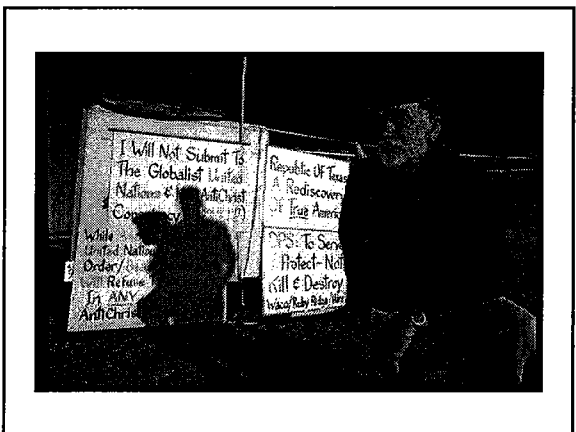 I Will Not Submit To
The Globalist United
Nations & AntiChrist
While
United Nation
Order/
Will Refuse
In ANY
AntiChris
Republic Of Texas
A Rediscovery
Of True Americ
DPS: To Serve
Protect - Not
Kill & Destroy
Waco/Ruby Ridge/